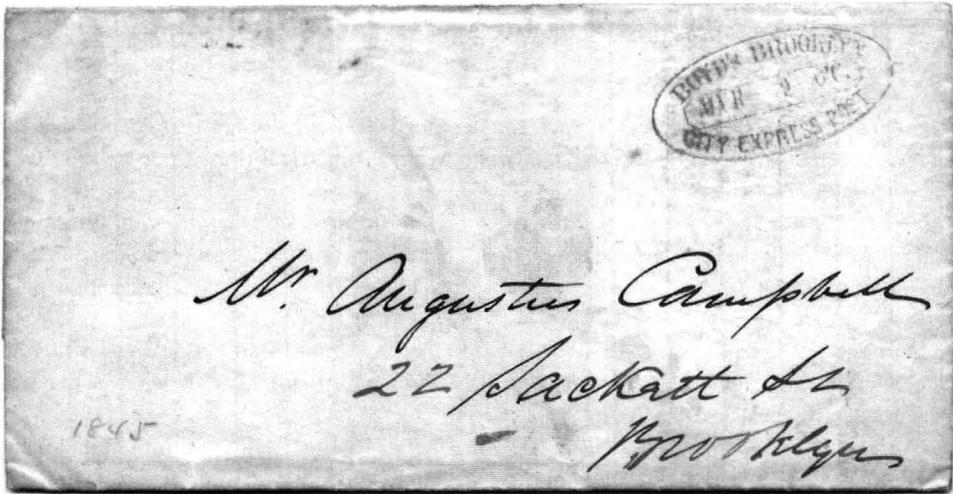 BOYD'S BROOKLYN
2 O'C.
CITY EXPRESS POST
Mr. Augustus Campbell
22 Sackatt St
Brooklyn
1845